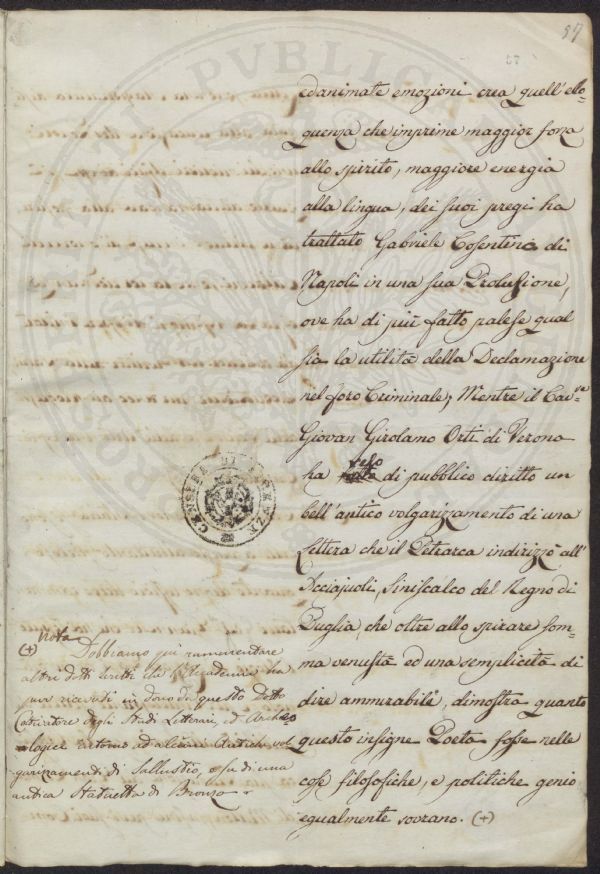 57
edanimate emozioni crea quell'ello=
quenza che imprime maggior forza
allo spirito, maggiore energia
alla lingua, dei suoi pregi ha
trattato Gabriele Cosentino di
Napoli in una sua Prolusione,
ove ha di più fatto palese qual
sia la utilità della Declamazione
nel foro Criminale; Mentre il Cav.re
Giovan Girolamo Orti di Verona
ha reso di pubblico diritto un
bell'antico volgarizzamento di una
Lettera che il Petrarca indirizzò all'
Acciajuoli, Siniscalco del Regno di
Puglia, che oltre allo spirare som=
ma venustà ed una semplicità di
dire ammirabile, dimostra quanto
questo insigne Poeta fosse nelle
cose filosofiche, e politiche genio
egualmente sovrano. (+)
Nota
(+) Dobbiamo qui rammentare
altri dotti scritti che l'Accademia ha
pur ricevuti in dono da questo dotto
Cultivatore degli Studi Letterari, ed Archeo
logici intorno ad alcuni Antichi vol
garizzamenti di Sallustio, e su di una
antica Statuetta di Bronzo.
CENSURA DI FIRENZE